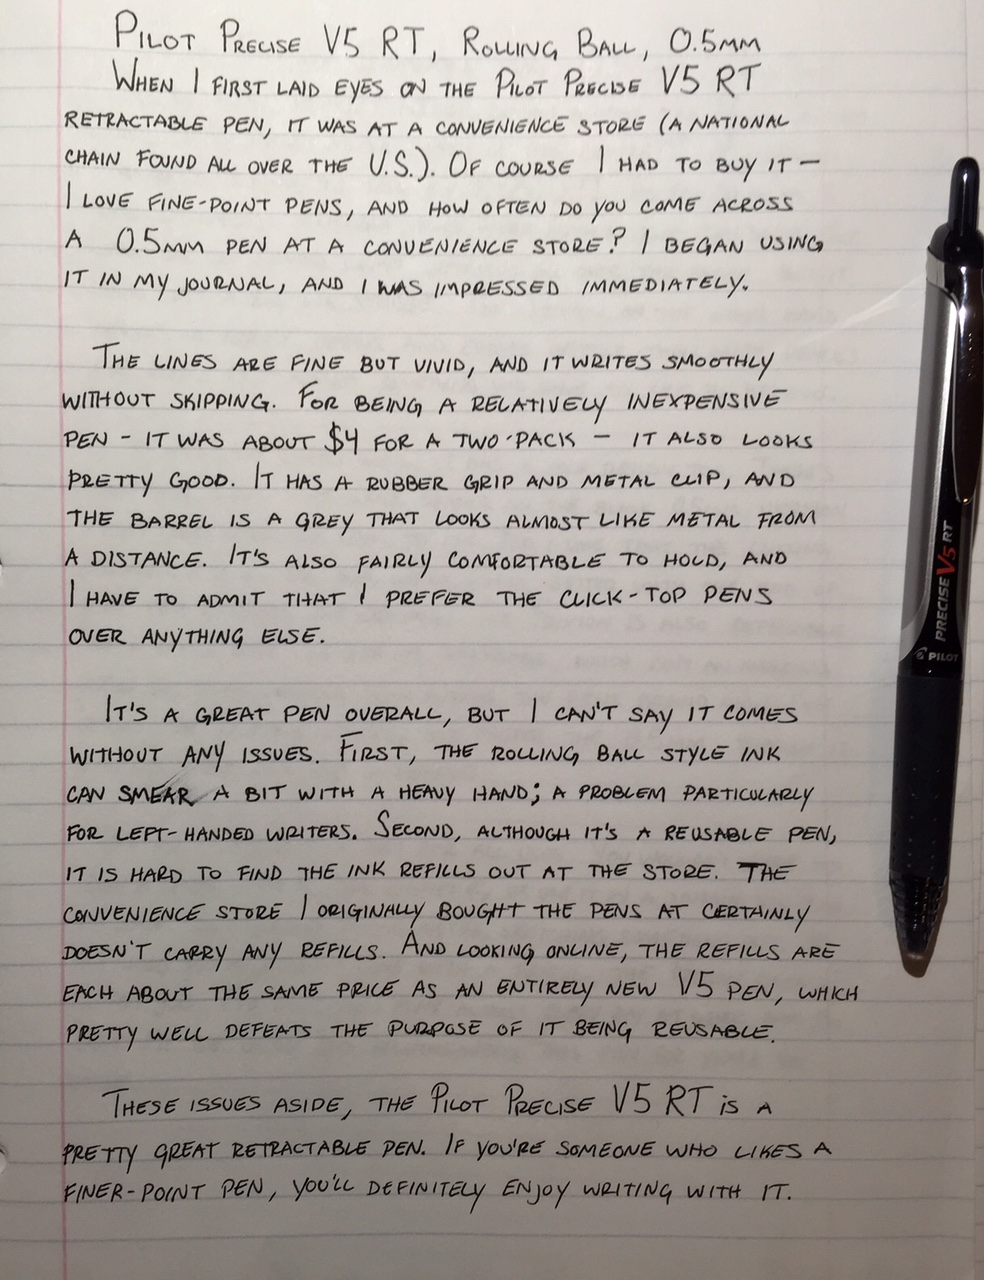 PILOT PRECISE V5 RT, ROLLING BALL, 0.5MM
WHEN I FIRST LAID EYES ON THE PILOT PRECISE V5 RT
RETRACTABLE PEN, IT WAS AT A CONVENIENCE STORE (A NATIONAL
CHAIN FOUND ALL OVER THE U.S.). OF COURSE I HAD TO BUY IT —
I LOVE FINE-POINT PENS, AND HOW OFTEN DO YOU COME ACROSS
A 0.5MM PEN AT A CONVENIENCE STORE? I BEGAN USING
IT IN MY JOURNAL, AND I WAS IMPRESSED IMMEDIATELY.
THE LINES ARE FINE BUT VIVID, AND IT WRITES SMOOTHLY
WITHOUT SKIPPING. FOR BEING A RELATIVELY INEXPENSIVE
PEN - IT WAS ABOUT $4 FOR A TWO-PACK — IT ALSO LOOKS
PRETTY GOOD. IT HAS A RUBBER GRIP AND METAL CLIP, AND
THE BARREL IS A GREY THAT LOOKS ALMOST LIKE METAL FROM
A DISTANCE. IT'S ALSO FAIRLY COMFORTABLE TO HOLD, AND
I HAVE TO ADMIT THAT I PREFER THE CLICK-TOP PENS
OVER ANYTHING ELSE.
IT'S A GREAT PEN OVERALL, BUT I CAN'T SAY IT COMES
WITHOUT ANY ISSUES. FIRST, THE ROLLING BALL STYLE INK
CAN SMEAR A BIT WITH A HEAVY HAND; A PROBLEM PARTICULARLY
FOR LEFT-HANDED WRITERS. SECOND, ALTHOUGH IT'S A REUSABLE PEN,
IT IS HARD TO FIND THE INK REFILLS OUT AT THE STORE. THE
CONVENIENCE STORE I ORIGINALLY BOUGHT THE PENS AT CERTAINLY
DOESN'T CARRY ANY REFILLS. AND LOOKING ONLINE, THE REFILLS ARE
EACH ABOUT THE SAME PRICE AS AN ENTIRELY NEW V5 PEN, WHICH
PRETTY WELL DEFEATS THE PURPOSE OF IT BEING REUSABLE.
THESE ISSUES ASIDE, THE PILOT PRECISE V5 RT IS A
PRETTY GREAT RETRACTABLE PEN. IF YOU'RE SOMEONE WHO LIKES A
FINER-POINT PEN, YOU'LL DEFINITELY ENJOY WRITING WITH IT.
PILOT PRECISE V5 RT